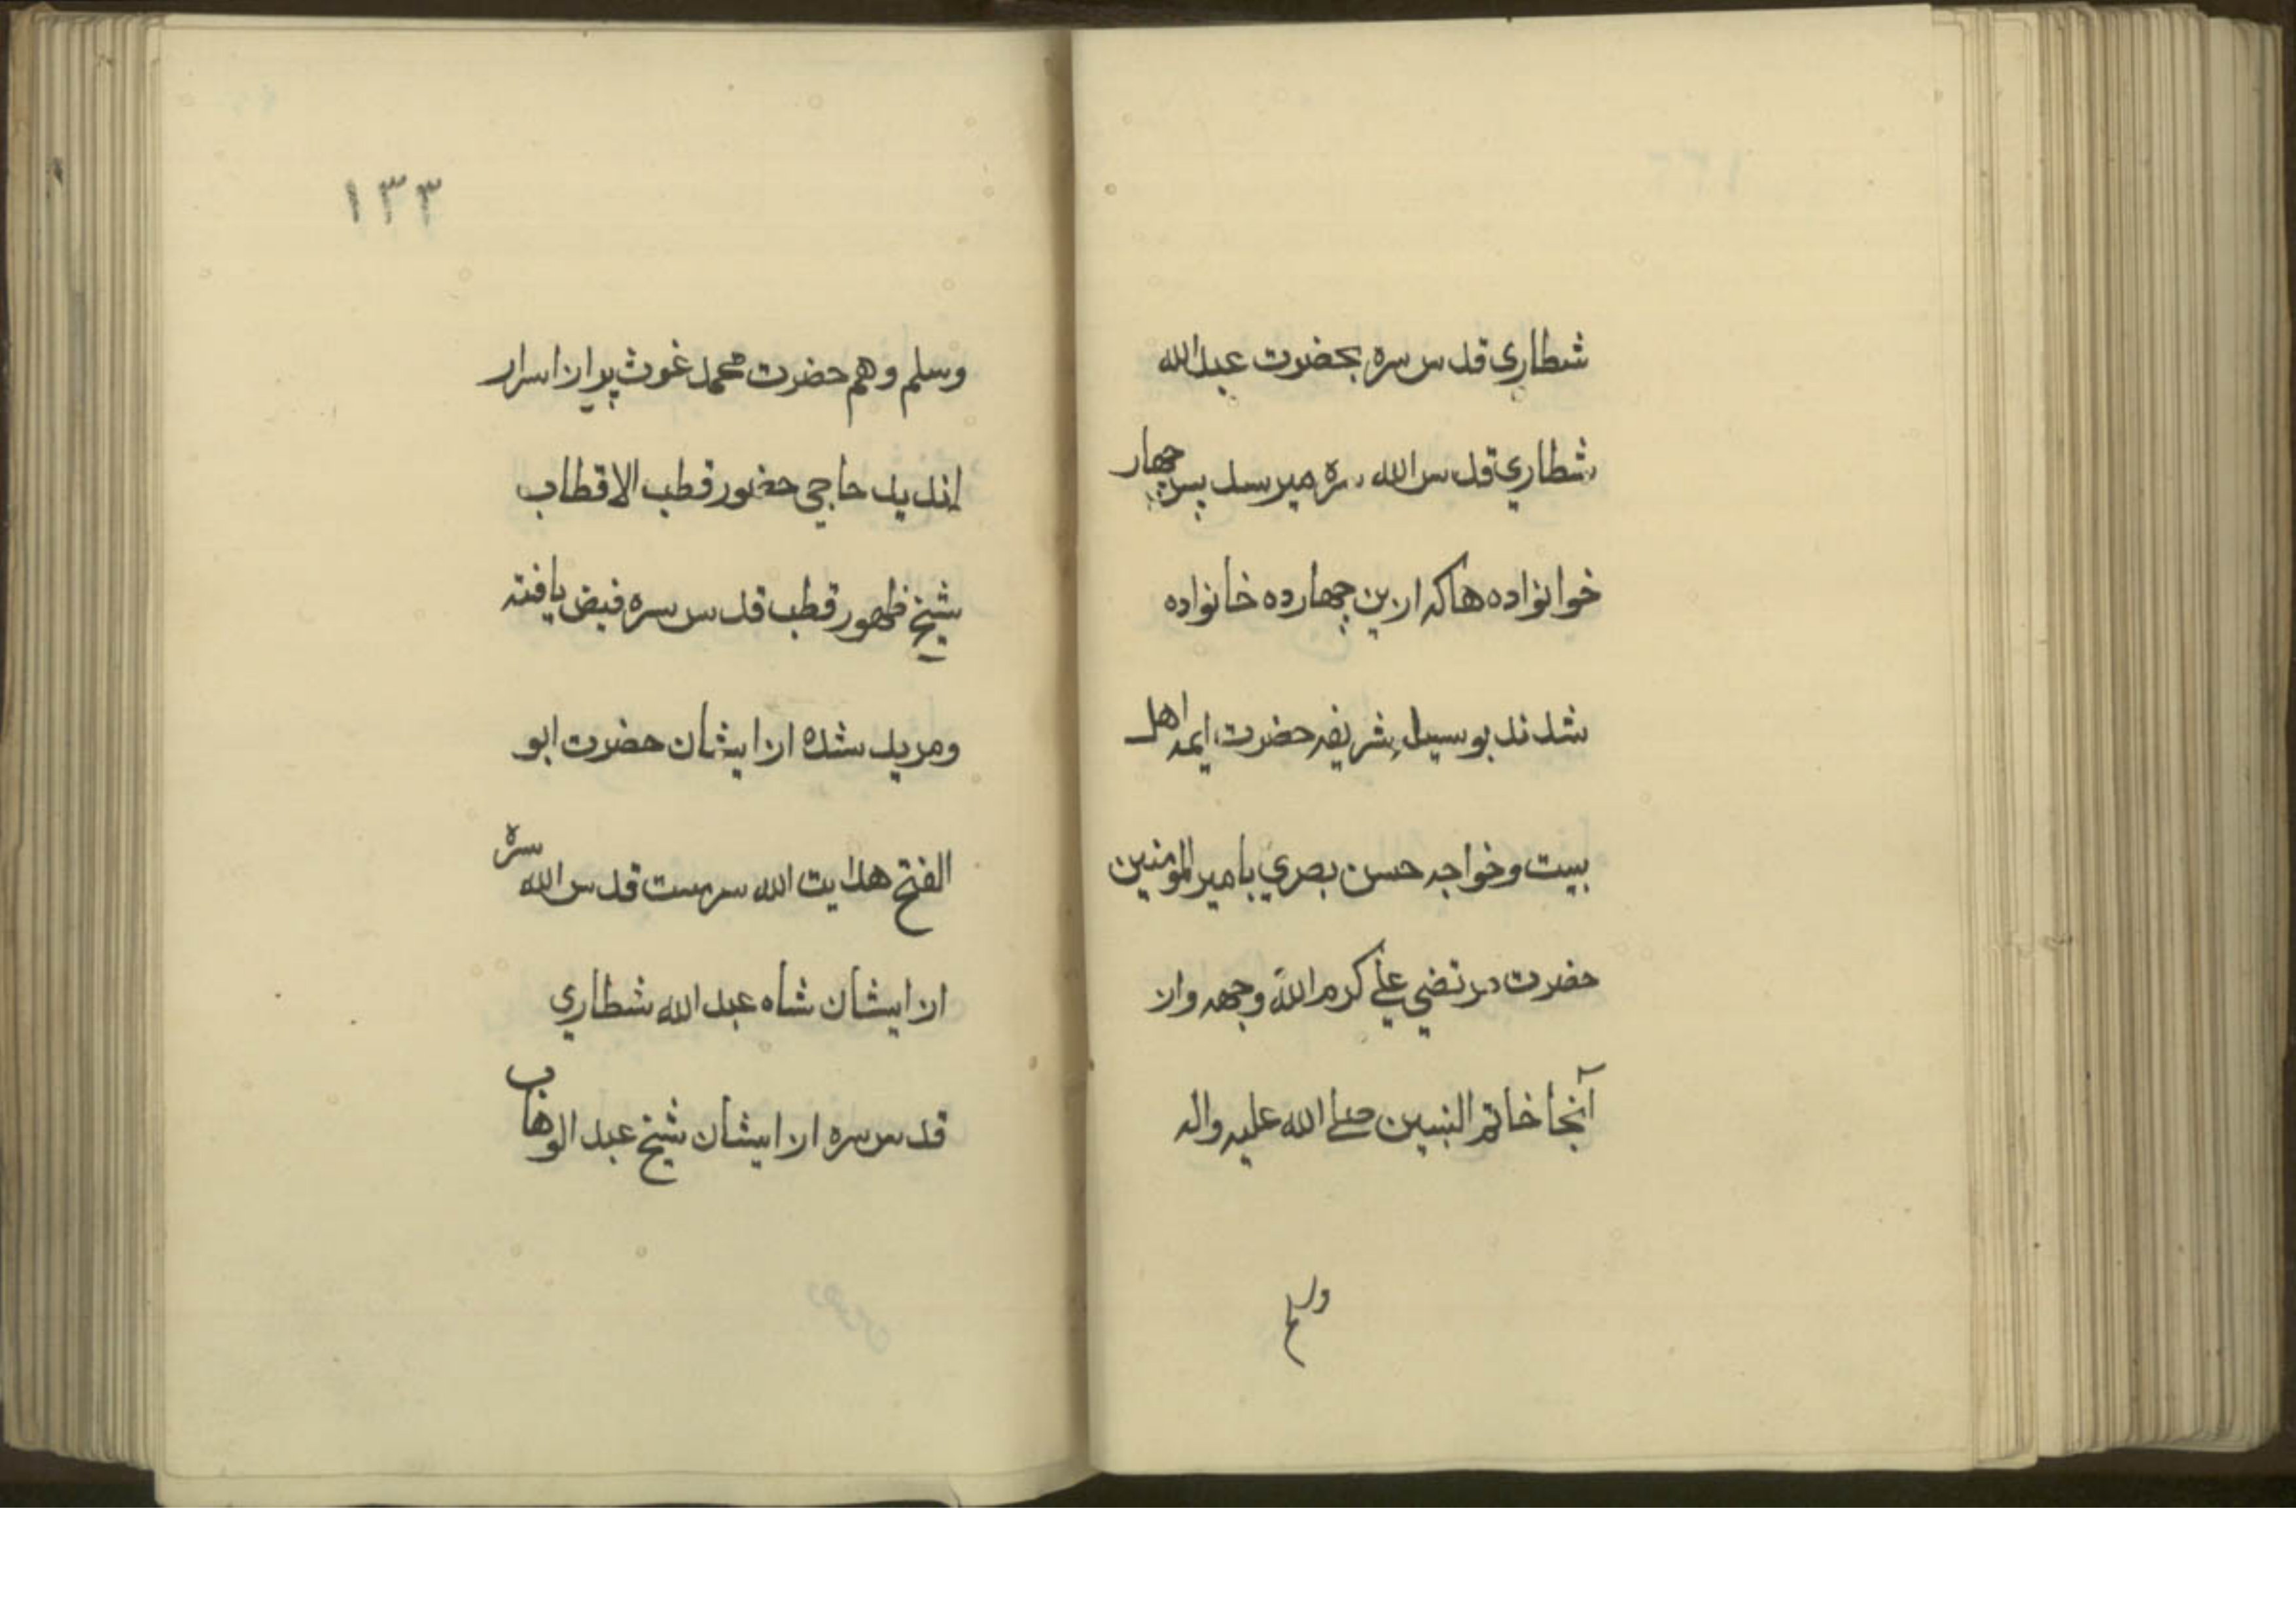 شطاري قدس سره بحضرت عبدالله
شطاري قدس الله سره ميرسد پس چهار
خوانواده ها كه ازين چهارده خانواده
شدند بوسيله شريفه حضرت ايمه اهل
بيت وخواجه حسن بصري بامير المومنين
حضرت مرتضي علي كرم الله وجهه واز
آنجا خاتم النبيين صلے الله عليه واله
وسلم
١٣٣
وسلم وهم حضرت محمد غوث پير از اسرار
انديد حاجي حضور قطب الاقطاب
شيخ ظهور قطب قدس سره فيض يافته
ومريد شده از ايشان حضرت ابو
الفتح هدايت الله سرمست قدس الله سره
از ايشان شاه عبد الله شطاري
قدس سره از ايشان شيخ عبد الوهاب